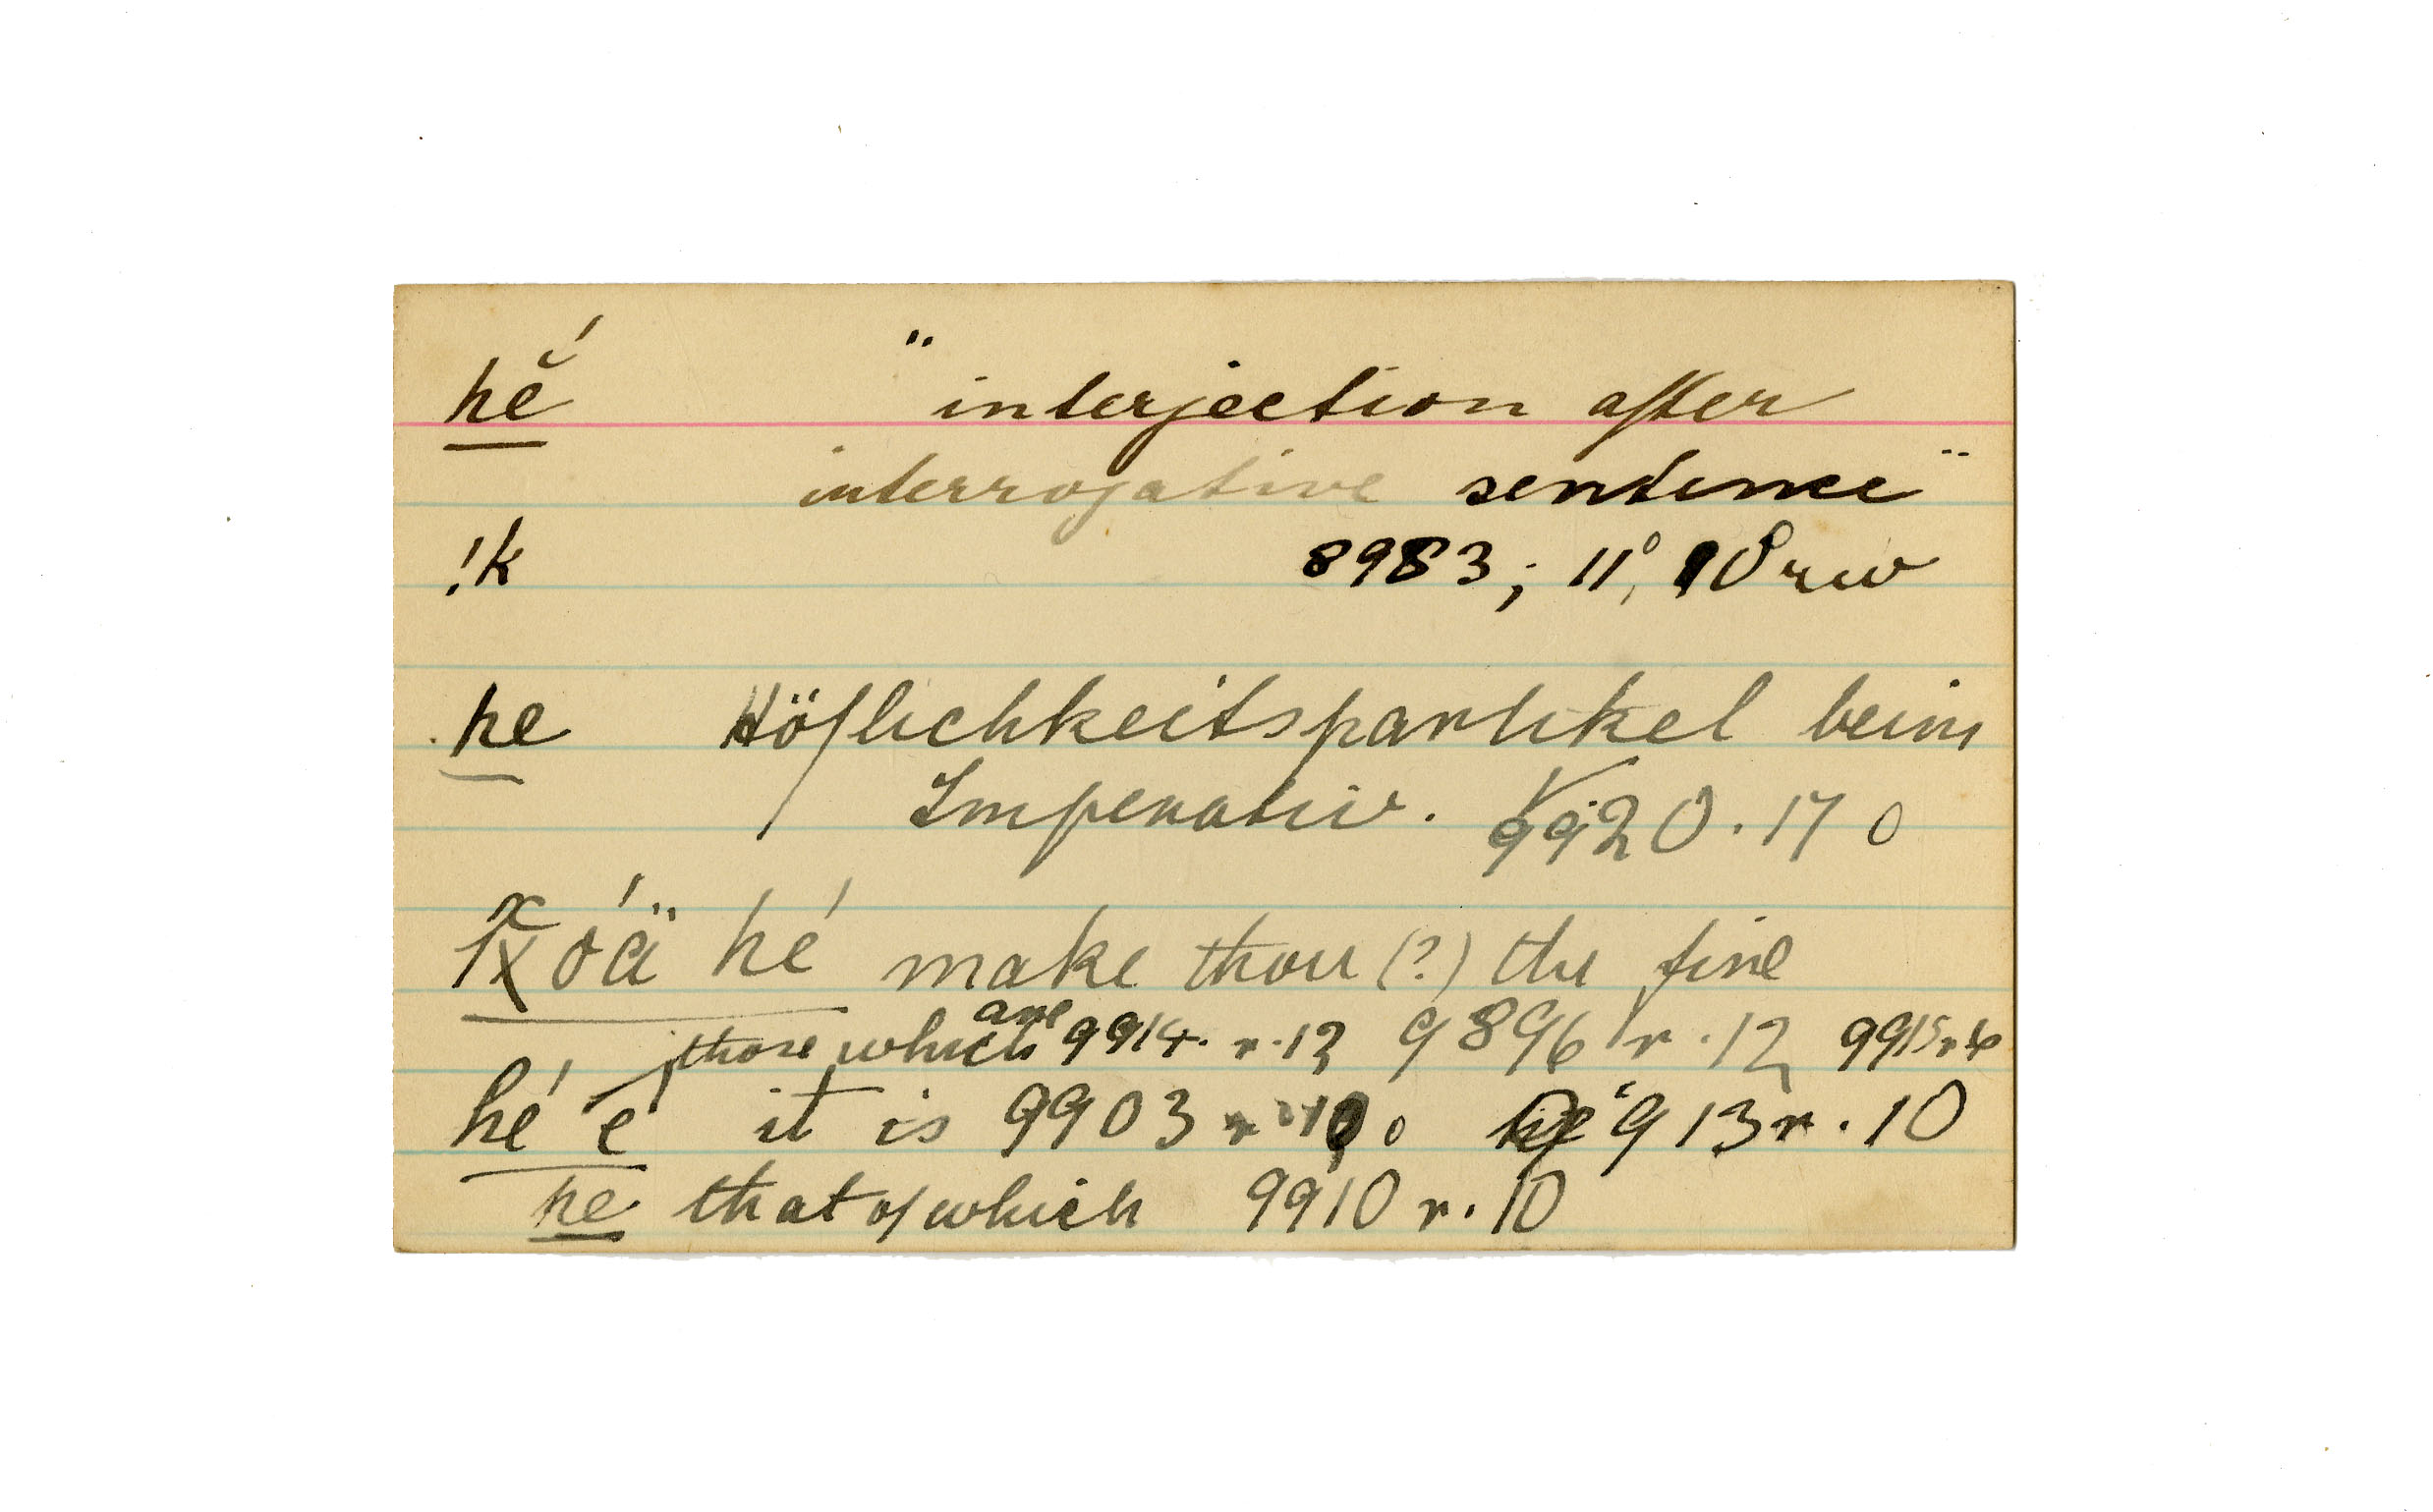 hĕ́ "interjection after
interrogative sentence"
!k 8983; 11°,
he Höflichkeitspartikel beim
Imperativ. 9920.17 0
óä hé make thou (?) the fire
those which are 9914. r.12 9896 r.12 9915 r.
hé e it is 9903 r. 9913 r.10
he that of which 9910 r.10